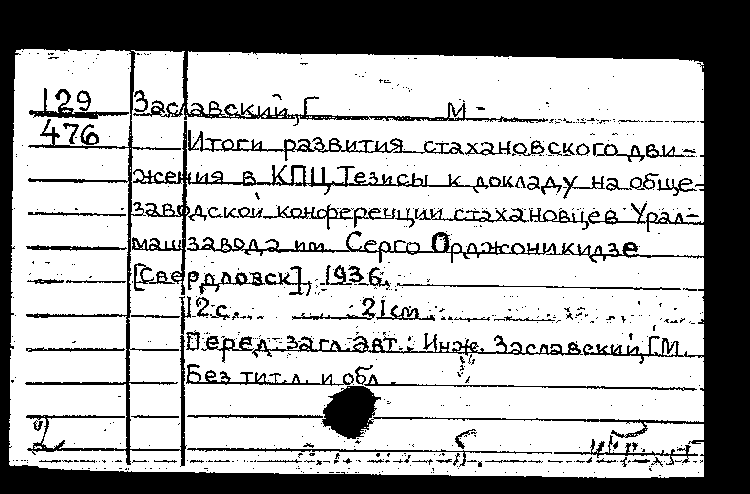 129 Заславский, Г М -
476 Итоги развития стахановского дви-
жения в КПЦ, Тезисы к докладу на обще-
заводской конференции стахановцев Урал-
машзавода им Серго Орджоникидзе
[Свердловск], 1936.
12 с. 21 см
Перед загл. авт.: Инж. Заславский, Г.М.
Без тит. л. и обл.
2